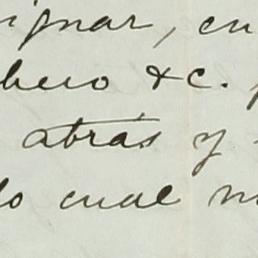 ignar, en
bero &c.
atrás y
lo cual